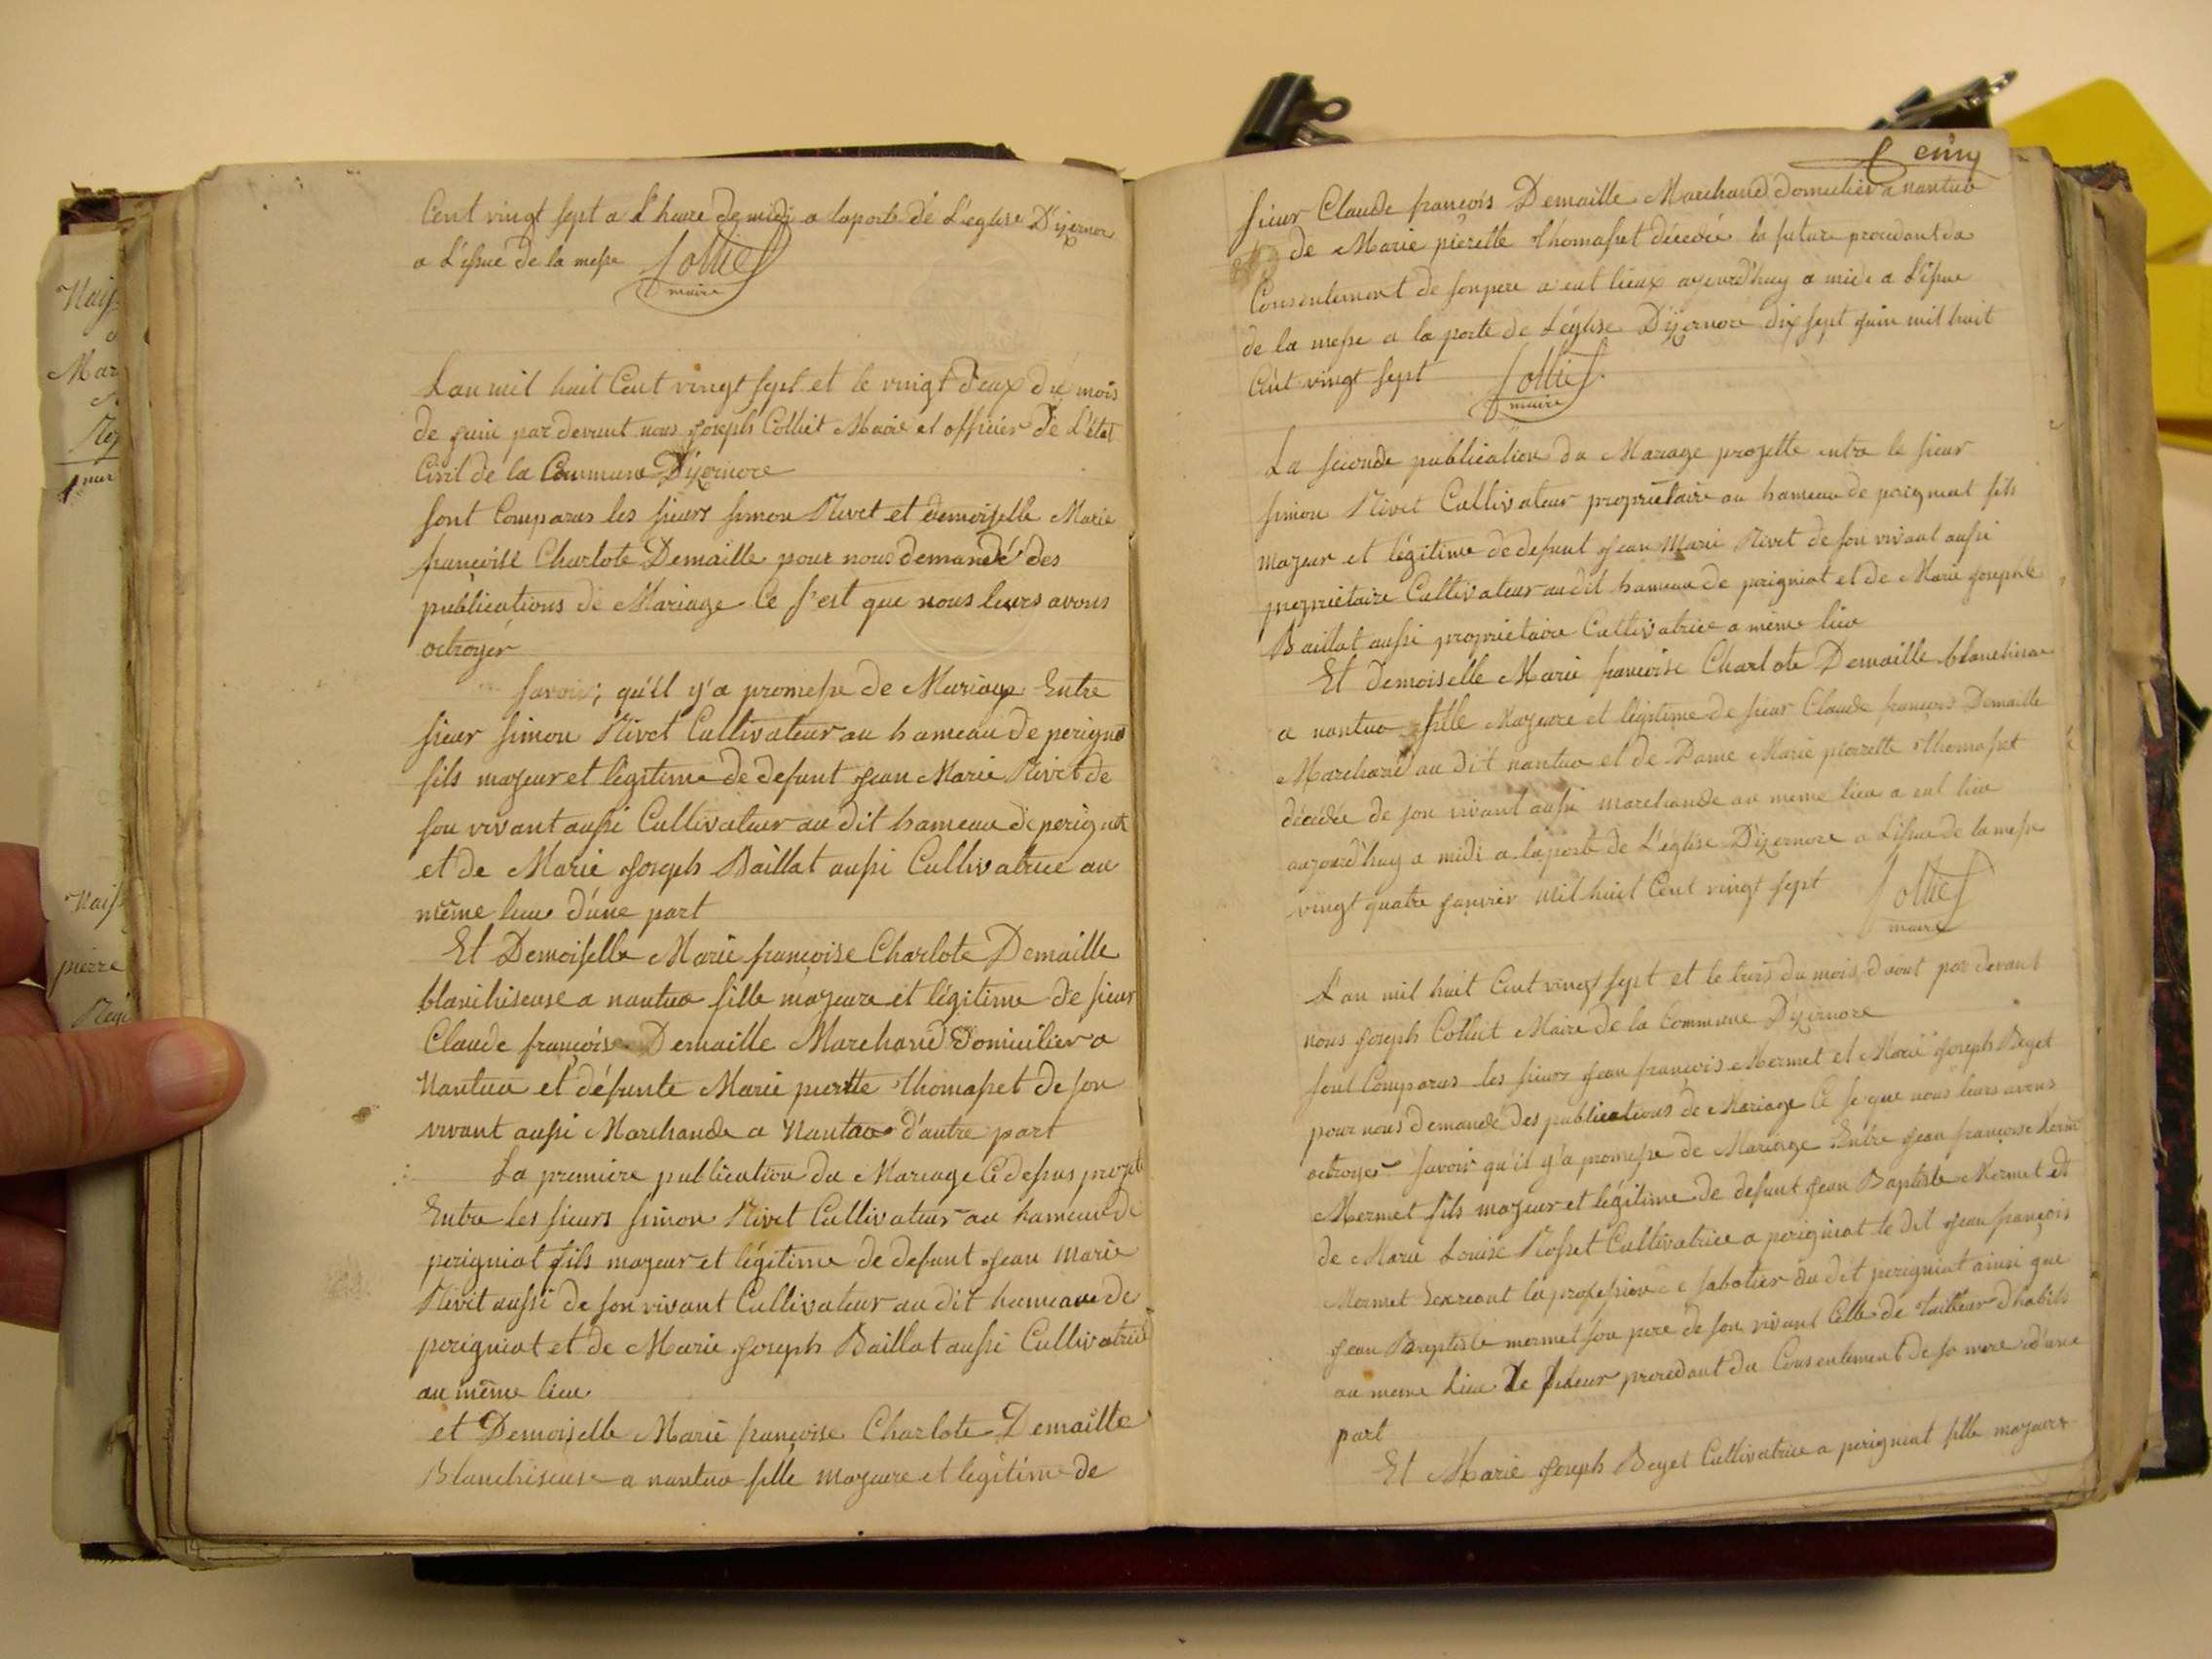 Naiss
Mar
Naiss
pierre
Cent vingt sept a L'heure de midi a la porte de L'eglise D'izernore
a L'issue de la messe Colliet
maire
Lan mil huit Cent vingt sept et le vingt deux du mois
de juin par devant nous joseph Colliet Maire et officier de L'état
Civil de la Commune D'izernore
sont Comparus les sieurs simon Nivet et demoiselle Marie
françoise Charlote Demaille pour nous demandé des
publications de Mariage Ce s'est que nous leurs avons
octroyer
savoir; qu'il y'a promesse de Mariage Entre
sieur simon Nivet Cultivateur au hameau de perignat
fils majeur et légitime de defunt jean Marie Nivet de
son vivant aussi Cultivateur au dit hameau de perignat
et de Marie joseph Baillat aussi Cultivatrice au
même lieu d'une part
Et Demoiselle Marie françoise Charlote Demaille
blanchiseuse a nantua fille majeure et légitime de sieur
Claude françois Demaille Marchand Domicilier a
Nantua et défunte Marie pierrette thomasset de son
vivant aussi Marchande a Nantua d'autre part
La premiere publication du Mariage Ci dessus projeté
Entre les sieurs simon Nivet Cultivateur au hameau de
perigniat fils majeur et légitime de defunt jean Marie
Nivit aussi de son vivant Cultivateur au dit hameau de
perigniat et de Marie joseph Baillat aussi Cultivatrice
au même lieu
et Demoiselle Marie françoise Charlote Demaille
Blanchiseuse a nantua fille majeure et legitime de
cinq
sieur Claude françois Demaille Marchand domicilier a nantua
de Marie pierette thomasset décedée la future procedant du
Consentement de son pere a eut lieux aujourd'huy a midi a L'issue
de la messe a la porte de L'église D'izernore dix sept juin mil huit
Cent vingt sept Colliet
maire
La seconde publication du Mariage projetté entre le sieur
simon Nivet Cultivateur proprietaire au hameau de perigniat fils
majeur et légitime de defunt jean Marie Nivet de son vivant aussi
proprietaire Cultivateur audit hameau de perigniat et de Marie josephte
Baillat aussi proprietaire Cultivatrice a même lieu
Et demoiselle Marie françoise Charlote Demaille blanchiseuse
a nantua fille Majeure et légitime de sieur Claude françois Demaille
Marchand au dit nantua et de Dame Marie pierrette thomasset
décédée de son vivant aussi marchande au meme lieu a eut lieu
aujourd'huy a midi a la porte de L'église D'izernore a L'issue de la messe
vingt quatre janvier mil huit Cent vingt sept Colliet
maire
L'an mil huit Cent vingt sept et le trois du mois d'aout par devant
nous joseph Colliet Maire de la Commune D'izernore
sont Comparus les sieurs jean françois Mermet et Marie joseph Beget
pour nous demandé des publications de Mariage Ce se que nous leurs avons
octroyer savoir qu'il y'a promesse de Mariage Entre jean françoise
Mermet fils majeur et légitime de defunt jean Baptiste Mermet et
de Marie Louise Rosset Cultivatrice a perigniat le dit jean françois
Mermet Exercant la profession de sabotier au dit perigniat ainsi que
jean Baptiste mermet son pere de son vivant Celle de tailleur d'habits
au meme Lieu Le futeur procedant du Consentement de sa mere d'une
part
Et Marie joseph Beget Cultivatrice a perigniat fille majeure